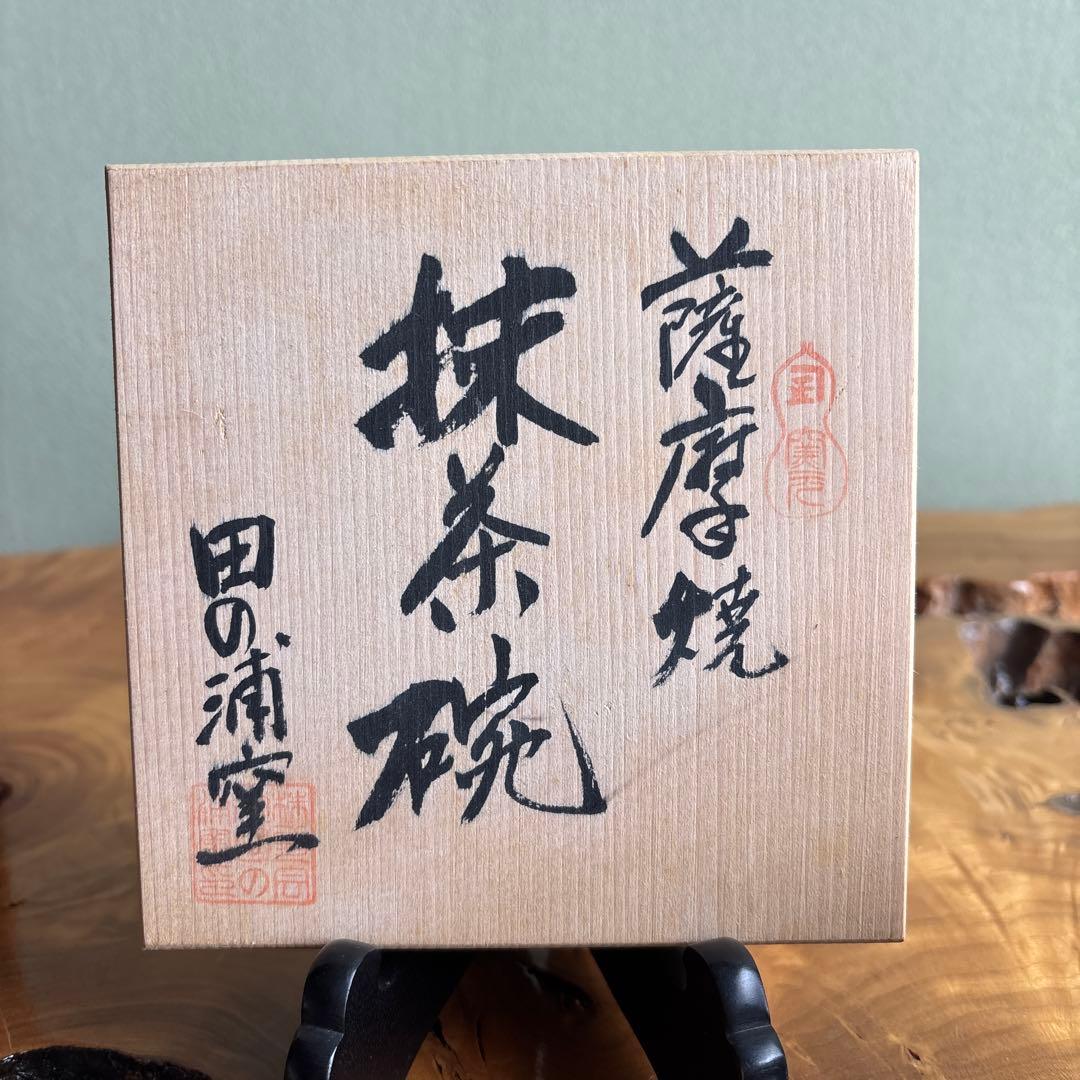 薩摩焼
抹茶碗
田の浦窯